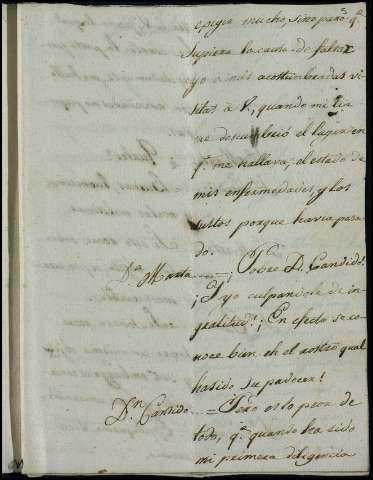 mucho, sino para q.e
supiera la causa de faltar
yo a mis acostumbradas vi
sitas a V, quando mi tia
me descubrió el lugar en
q.e me hallava, el estado de
mis enfermedades, y los
sustos porque havia pasa
do.
D.a Marta — ¡Pobre D.n Candido!
¡Y yo culpandole de in
gratitud! ¡En efecto se co
noce bien en el rostro qual
ha sido su padecer!
D.n Candido. = Pero es lo peor de
todo, q.e quando ha sido
mi primera diligencia